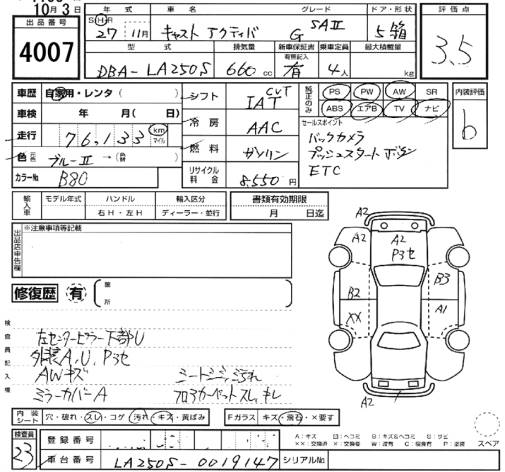 10月3日
出品番号
4007
年式 車名 グレード ドア・形状
S H R 27 11月 キャスト アクティバ G SAⅡ 5 箱
型式 排気量 新車保証書 乗車定員 最大積載量
有・記録簿
DBA-LA250S 660cc 有 4人 kg
評価点
3.5
車歴 自家用・レンタ( )
シフト CVT IAT
車検 年 月( 日)
冷房 AAC
走行 76,135 km マイル
燃料 ガソリン
色 ブルーⅡ →
リサイクル料金 8,550円
カラーNo B80
純正のみ
PS PW AW SR
ABS エアB TV ナビ
セールスポイント
バックカメラ
プッシュスタートボタン
ETC
内装評価
b
輸入車 モデル年式 ハンドル 輸入区分
右H・左H ディーラー・並行
書類有効期限
月 日迄
出品店申告欄
※注意事項等記載
修復歴 有 箇所
検査員記入欄
左センターピラー下部U
外装A,U,P3セ
AWキズ
ミラーカバーA
シートシミ、汚れ
フロアカーペットスレ、キレ
A2
A2
P3セ
B2
B3
XX
A1
A2
内装シート 穴・破れ・スレ・コゲ・汚れ・キズ・黄ばみ
Fガラス キズ・飛石・×要す
検査員
23
登録番号
車台番号 LA250S-0019147
シリアルNo
A:キズ U:凹ヘコミ B:キズ&ヘコミ S:サビ
XX:交換済 X:交換要 W:波有 C:腐食有 P:塗装
スペア